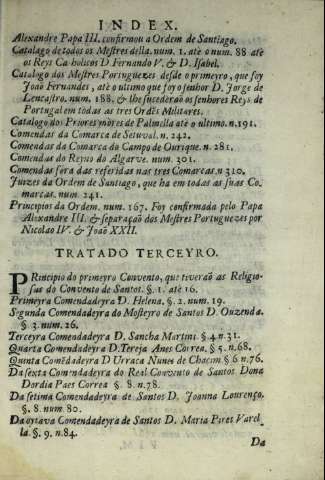 INDEX.
Alexandre Papa III. confirmou a Ordem de Santiago.
Catalago de todos os Mestres della. num. 1. atè o num. 88 atè
os Reys Catholicos D. Fernando V. & D. Isabel.
Catalogo dos Mestres Portuguezes desde o primeyro, que foy
Joaõ Fernandes, atè o ultimo que foy o senhor D. Jorge de
Lencastro. num. 188. & lhe sucederaõ os senhores Reys de
Portugal em todas as tres Ordẽs Militares.
Catalogo do Priores mòres de Palmella atè o ultimo. n. 191.
Comendas da Comarca de Setuval. n. 242.
Comendas da Comarca do Campo de Ourique. n. 281.
Comendas do Reyno do Algarve. num. 301.
Comendas fora das referidas nas tres Comarcas. n 310.
Juizes da Ordem de Santiago, que ha em todas as suas Co-
marcas. num. 241.
Principios da Ordem. num. 167. Foy confirmada pelo Papa
Alexandre III. & separaçaõ dos Mestres Portuguezes por
Nicolao IV. & Joaõ XXII.
TRATADO TERCEYRO.
PRincipio do primeyro Convento, que tiveraõ as Religio-
sas do Convento de Santos. §. 1. atè 16.
Primeyra Comendadeyra D. Helena. §. 2. num. 19.
Segunda Comendadeyra do Mosteyro de Santos D. Ouzenda.
§. 3. num. 26.
Terceyra Comendadeyra D. Sancha Martins. § 4 n. 31.
Quarta Comendadeyra D. Tereja Anes Correa. §. 5. n. 68.
Quinta Comẽdadeyra D Urraca Nunes de Chacim. § 6 n. 76.
Da sexta Comendadeyra do Real Convento de Santos Dona
Dordia Paes Correa §. 8. n. 78.
Da setima Comendadeyra de Santos D. Joanna Lourenço.
§. 8. num. 80.
Da oytava Comendadeyra de Santos D. Maria Pires Varel-
la. §. 9. n. 84.
Da